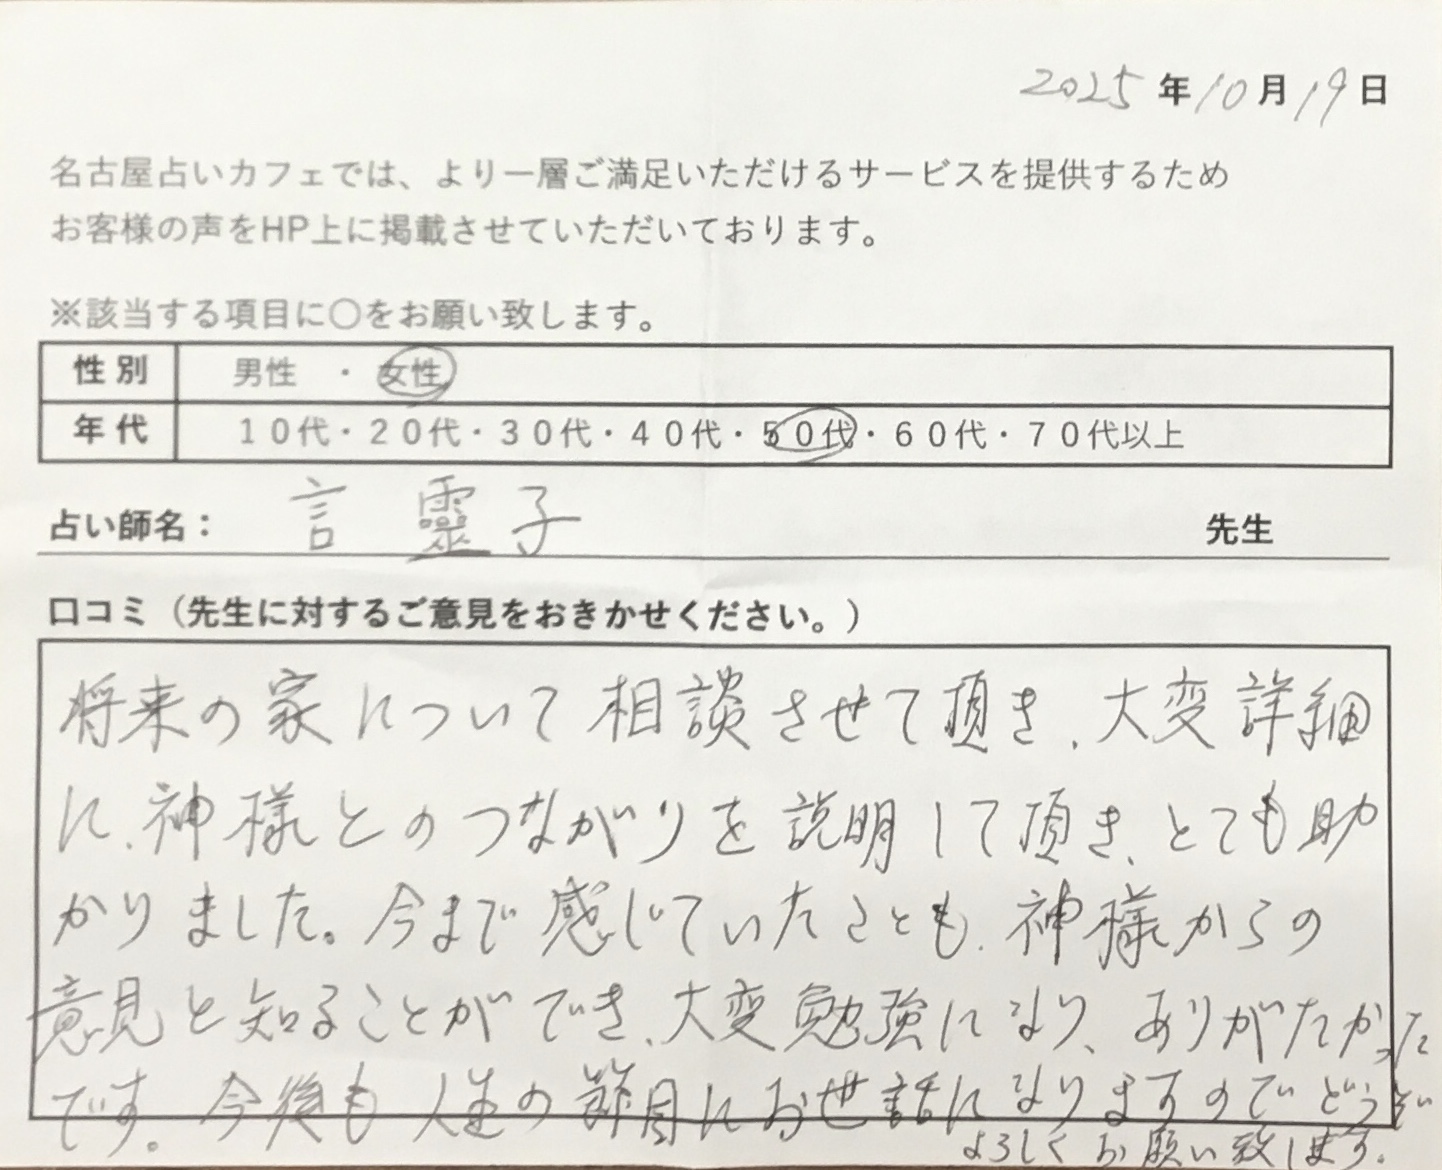 2025年10月19日
名古屋占いカフェでは、より一層ご満足いただけるサービスを提供するため
お客様の声をHP上に掲載させていただいております。
※該当する項目に〇をお願い致します。
性別 男性 ・ 女性
年代 10代・20代・30代・40代・50代・60代・70代以上
占い師名： 言靈子 先生
口コミ（先生に対するご意見をおきかせください。）
将来の家について相談させて頂き、大変詳細
に、神様とのつながりを説明して頂き、とても助
かりました。今まで感じていたことも、神様からの
意見と知ることができ、大変勉強になり、ありがたかった
です。今後も人生の節目にお世話になりますのでどうぞ
よろしくお願い致します。